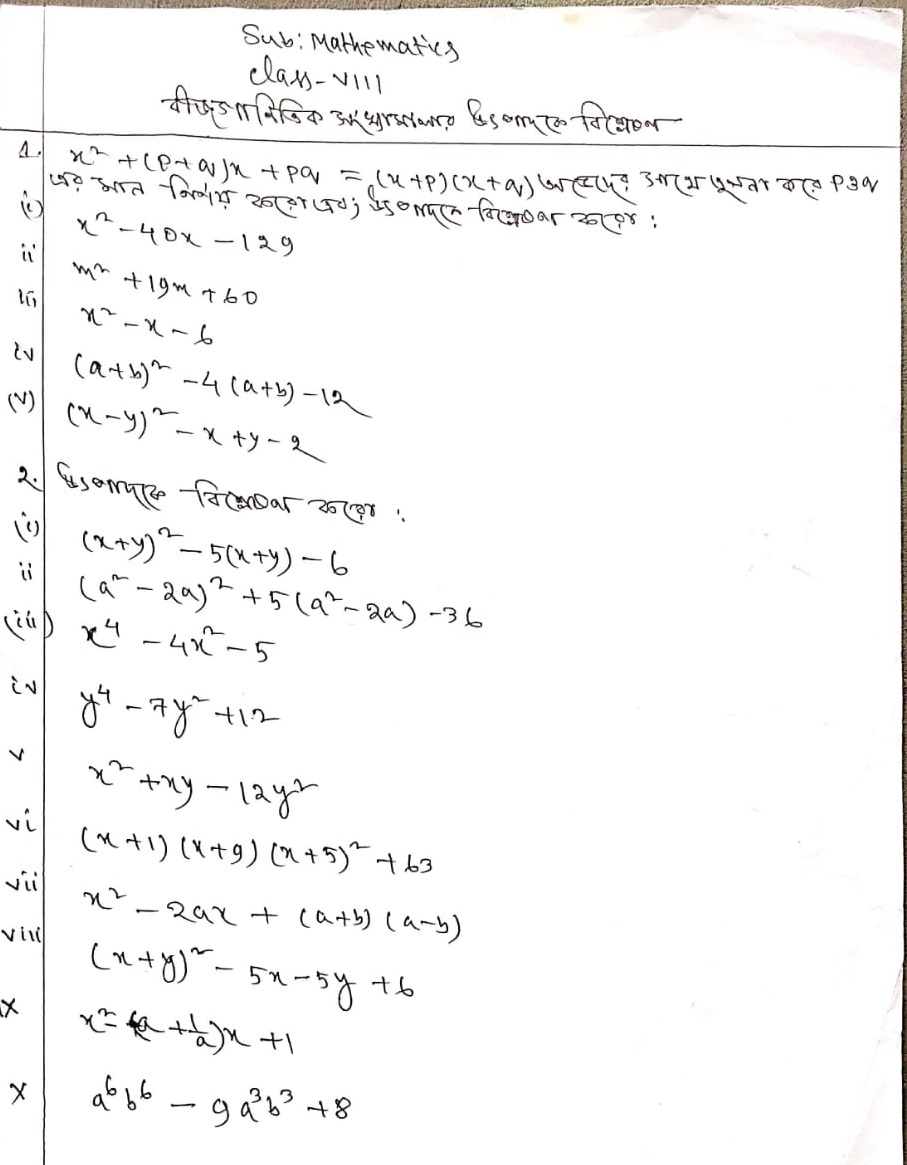 Sub: Mathematics
class-VIII
বীজগাণিতিক সংখ্যামালার উৎপাদকে বিশ্লেষণ
1. x² + (p+q)x + pq = (x+p)(x+q) অভেদের সাথে তুলনা করে p ও q
এর মান নির্ণয় করো এবং উৎপাদকে বিশ্লেষণ করো :
(i) x² - 40x - 129
ii m² + 19m + 60
iii x² - x - 6
iv (a+b)² - 4(a+b) - 12
(v) (x-y)² - x + y - 2
2. উৎপাদকে বিশ্লেষণ করো :
(i) (x+y)² - 5(x+y) - 6
ii (a² - 2a)² + 5(a² - 2a) - 36
(iii) x⁴ - 4x² - 5
iv y⁴ - 7y² + 12
v x² + xy - 12y²
vi (x+1)(x+9)(x+5)² + 63
vii x² - 2ax + (a+b)(a-b)
viii (x+y)² - 5x - 5y + 6
ix x² - (a + 1/a)x + 1
x a⁶b⁶ - 9a³b³ + 8